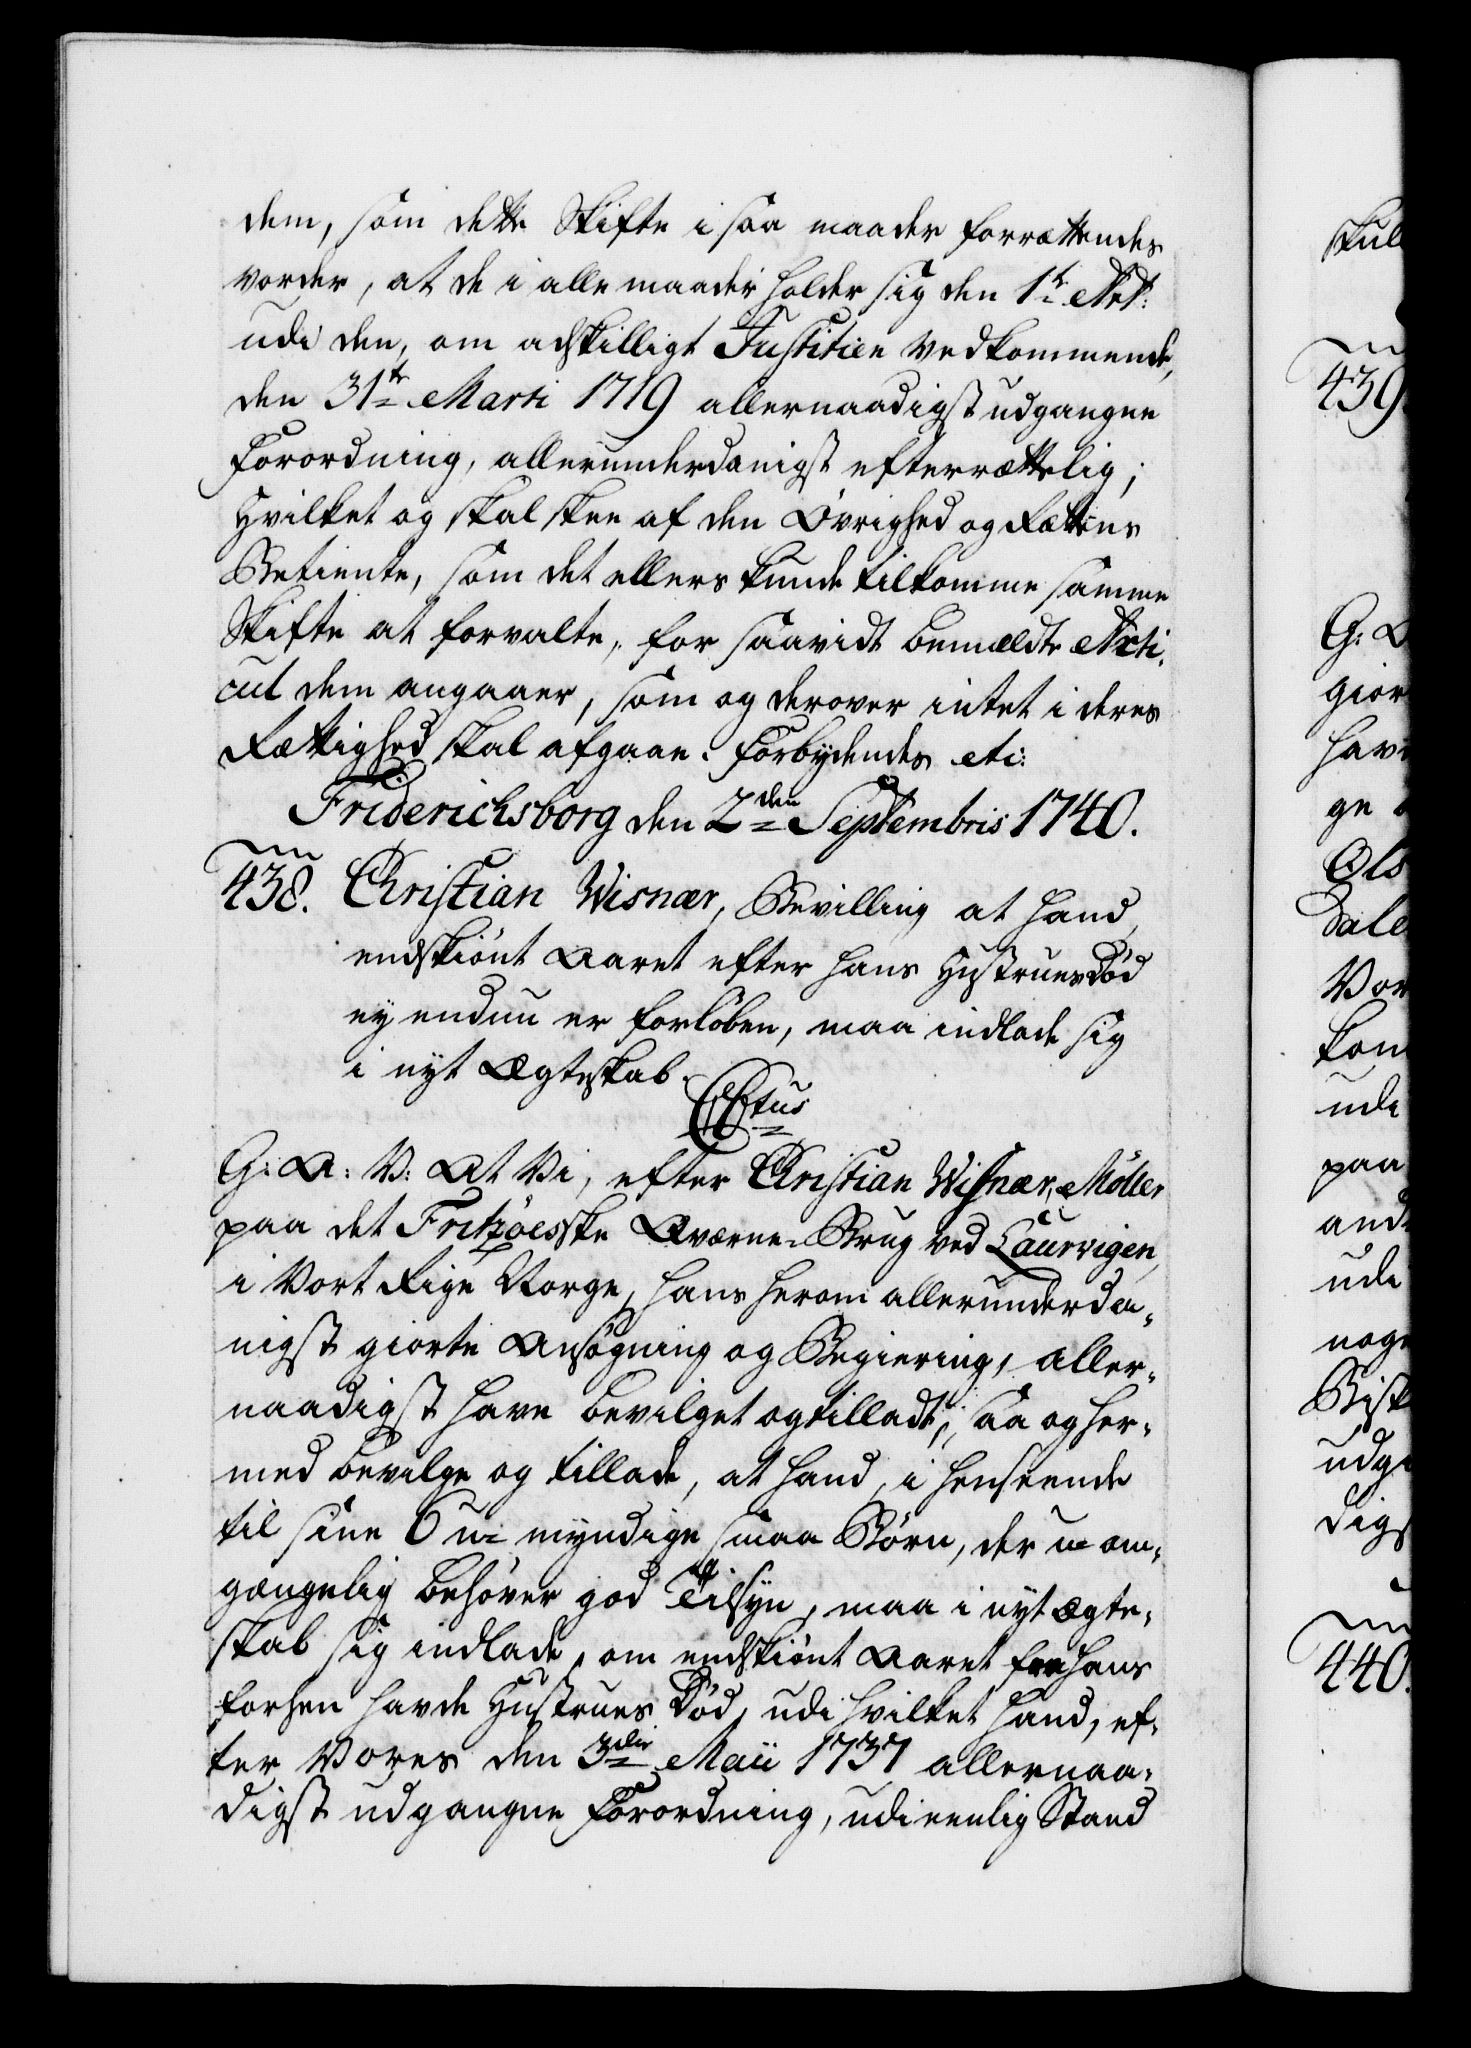 dem, som dette Skifte i saa maader forrættendes
vorder, at de i alle maader holder sig den 1te Art:
udi den, om adskilligt Justitien vedkommende,
den 31te Marti 1719 allernaadigst udgangne
Forordning, allerunderdanigst efterrættelig;
Hvilket og skal skee af den Øvrighed og Rættens
Betiente, som det ellers kunde tilkomme samme
Skifte at forvalte, for saavidt bemældte Arti-
cul dem angaaer, som og derover intet i deres
Rættighed skal afgaae. Forbydendes etc:
Friderichsborg den 2den Septembris 1740.
438. Christian Wisnær, Bevilling at hand,
endskiönt Aaret efter hans Hustrues Död
ey enduu er forlöben, maa indlade sig
i nyt Ægteskab.
C6tus
G: A: V: At Vi, efter Christian Wisnær, Möller
paa det Fritzöesske Qværne-Brug ved Laurvigen,
i Vort Rige Norge, hans herom allerunderda-
nigst giorte Ansögning og Begiering, aller-
naadigst have bevilget og tilladt, saa og her-
med bevilge og tillade, at hand, i henseende
til sine 6 u-myndige smaa Börn, der u-om-
gængelig behöver god Tilsyn, maa i nyt Ægte-
skab sig indlade, om endskiönt Aaret fra hans
forhen havde Hustrues Död, udi hvilket hand, ef-
ter Vores den 3die Maii 1737 allernaa-
digst udgangne Forordning, udi eenlig Stand
skul
439.
G: A
gior
hav
ge
Ols
Dale
Vor
kom
udi
paa
and
udi
noge
Bisk
udg
digs
440.